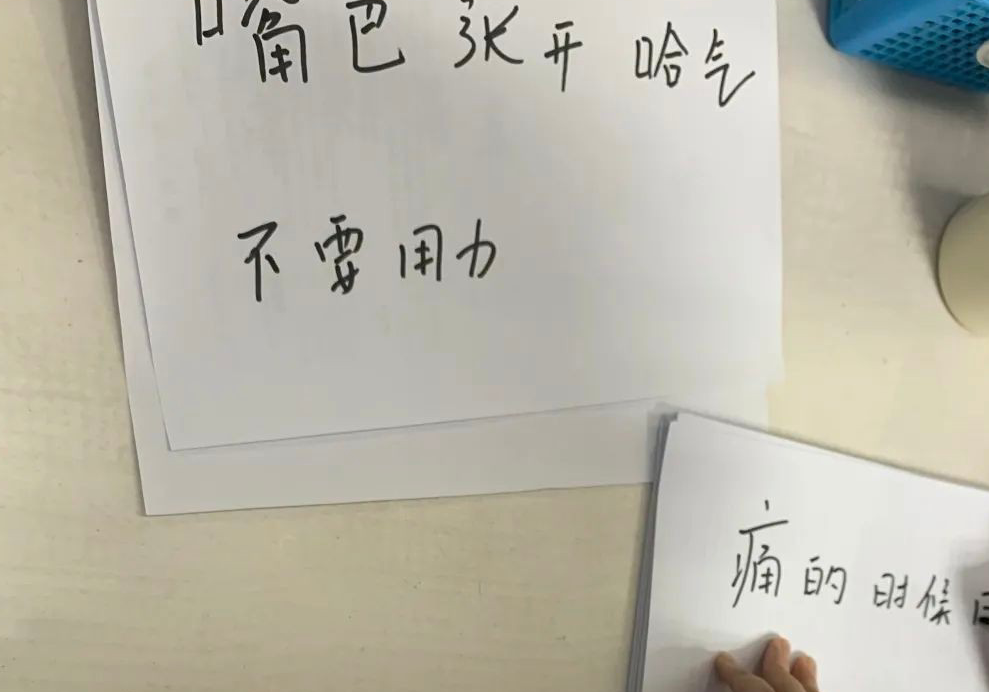 嘴巴张开 哈气
不要用力
痛的时候